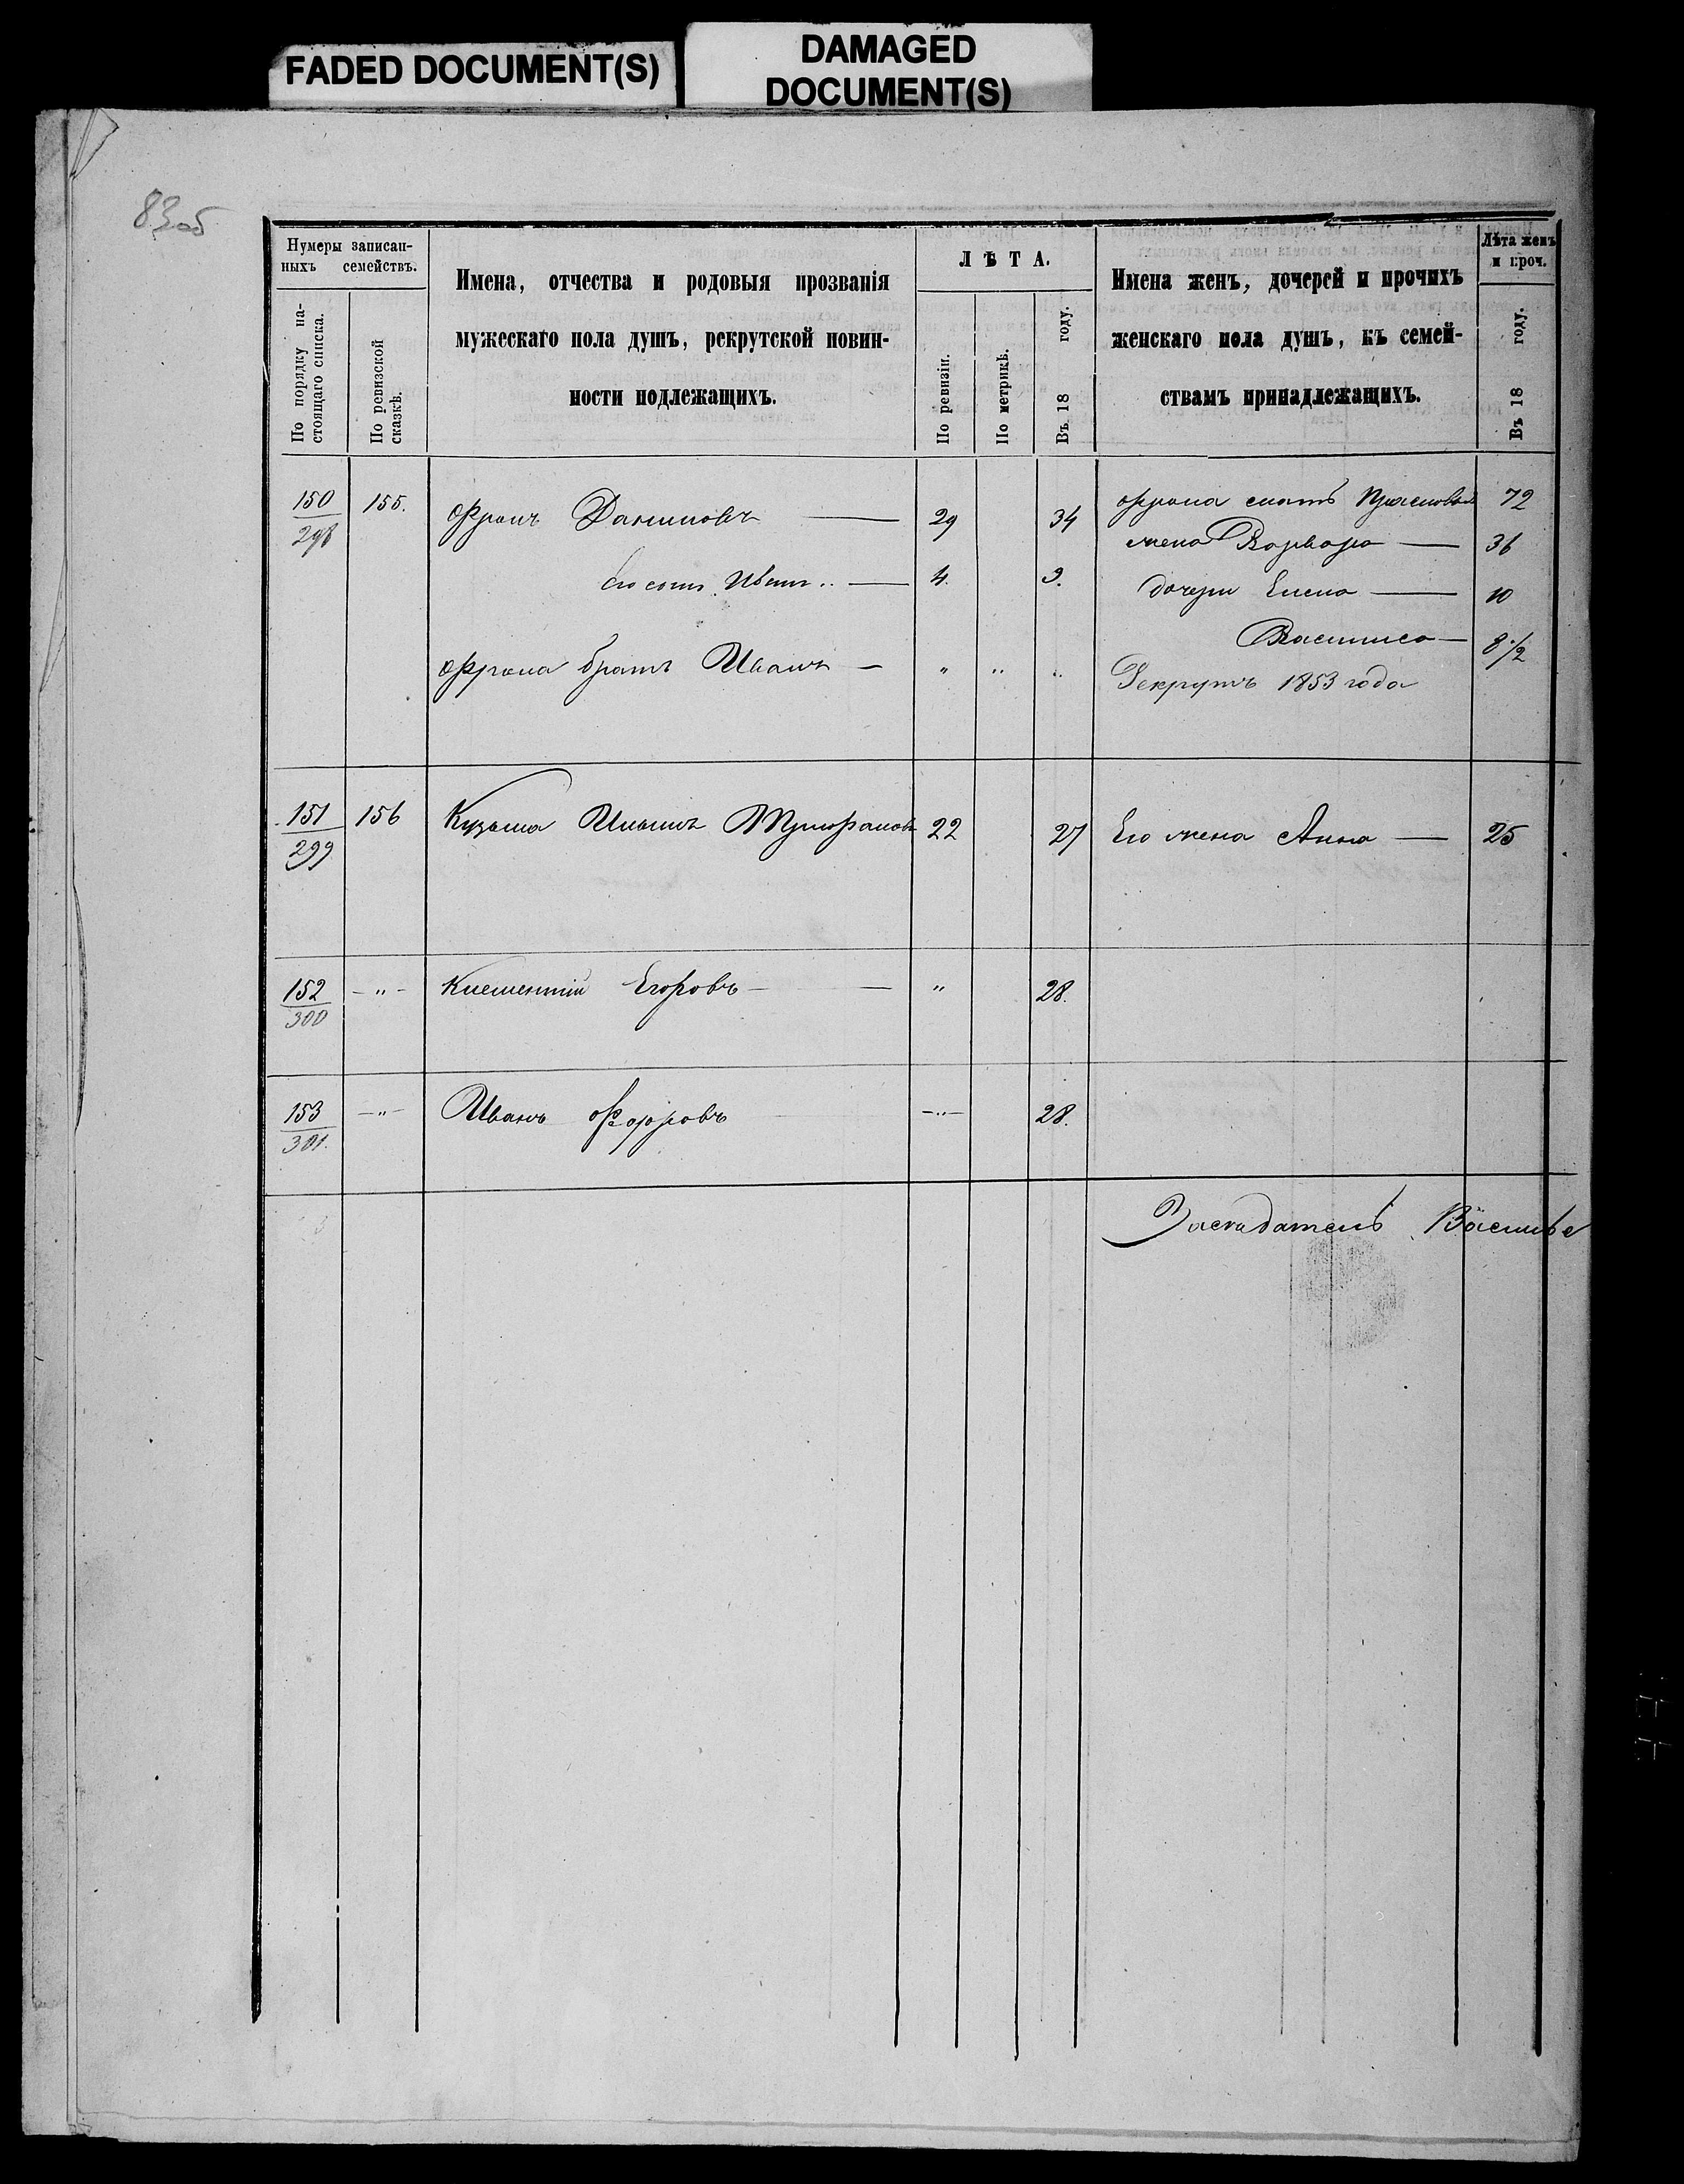 FADED DOCUMENT(S)
DAMAGED
DOCUMENT(S)
83об
Нумеры записан-
ныхъ семействъ.
По порядку на-
стоящаго списка.
По ревизской
сказкѣ.
Имена, отчества и родовыя прозванія
мужескаго пола душъ, рекрутской повин-
ности подлежащихъ.
ЛѢТА.
По ревизіи.
По метрикѣ.
Въ 18 году.
Имена женъ, дочерей и прочихъ
женскаго пола душъ, къ семей-
ствамъ принадлежащихъ.
Лѣта женъ
и проч.
Въ 18 году.
150 155. Фролъ Даниловъ — 29 34 Фрола мать 72
298
жена Варвара — 36
Его сынъ — 4. 9. дочери Елена — 10
Василиса — 8 1/2
Фрола братъ Иванъ — " " " Рекрутъ 1853 года
151 156 Кузьма 22 27 Его жена Анна — 25
299
152 — " — Клементій Егоровъ — — " 28.
300
153 — " — Иванъ Федоровъ — " — 28.
301.
Засѣдатель